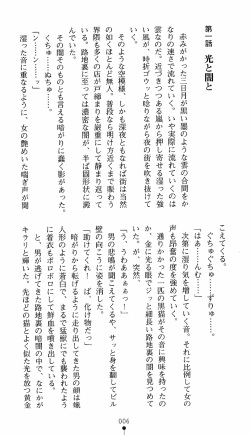 第一話 光と闇と
赤みがかった三日月が異様に重い雲の合間をか
なりの速さで流れていく。いや実際に流れているのは
雲なのだ。近づきつつある嵐から押し寄せる湿った強
い風が、時折ゴウッと唸りながら夜の街を吹き抜けて
いく。
そのような空模様、しかも深夜ともなれば街は当然
の如くほとんど無人。普段なら明け方近くまで人出
のある路地裏にまでは濃密な闇が、半ば固形状に澱
界隈も多くの店が戸締まりを厳重にして静まり返って
いる。
その闇そのものとも言える暗がりに蠢く影があった。
くちゅっ……ぬちゅ……。
「ンン……ン……ッ」
湿った音に重なるように、女の艶めいた喘ぎ声が聞
こえてくる。
ぐちゅぐちゅっ……ずりゅ……。
「はぁ……んむ……」
次第に湿り気を増していく音、それに比例して女の
声も昂奮の度を強めていく。
通りかかった一匹の黒猫がそれらの音に興味を持った
か、金に光る眼でジッと細長い路地裏の闇を見つめて
いたが、突然、
「う、うわあぁぁっ！」
男の悲鳴が聞こえてきて、サッと身を翻してビル
壁の向こうに姿を消した。
「助けてくれ！ ば、化け物だっ」
暗がりから転げるように走り出してきた男の顔は蝋
人形のように蒼白で、まるで猛獣にでも襲われたよう
に着衣もボロボロにして鮮血を噴き出している。
と、男が逃げてきた路地裏の暗闇の中でなにかが
キラリと輝いた。先ほどの猫とよく似た光を放つ黄金
006